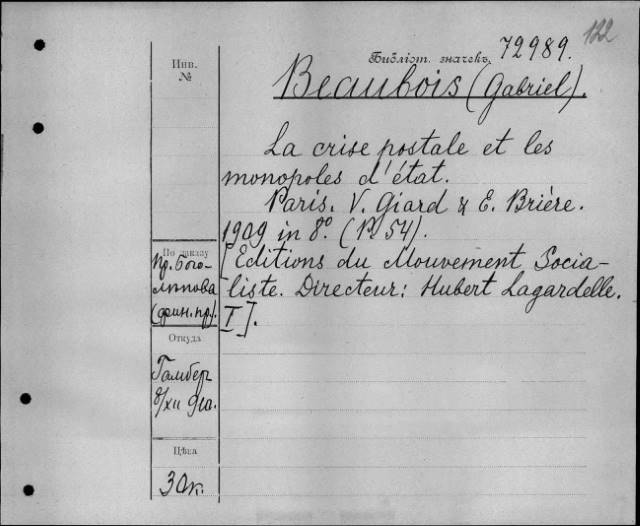 122
Библіот. значекъ. 72989.
Инв.
№
Beaubois (Gabriel).
La crise postale et les
monopoles d'état.
Paris. V. Giard & E. Brière.
1909 in 8º. (P. 54).
[Editions du Mouvement Socia-
liste. Directeur: Hubert Lagardelle.
I].
По заказу
Пр. Бого-
лѣпова
(фин. пр.).
Откуда
Гамбер
8/XII 910.
Цѣна
30к.